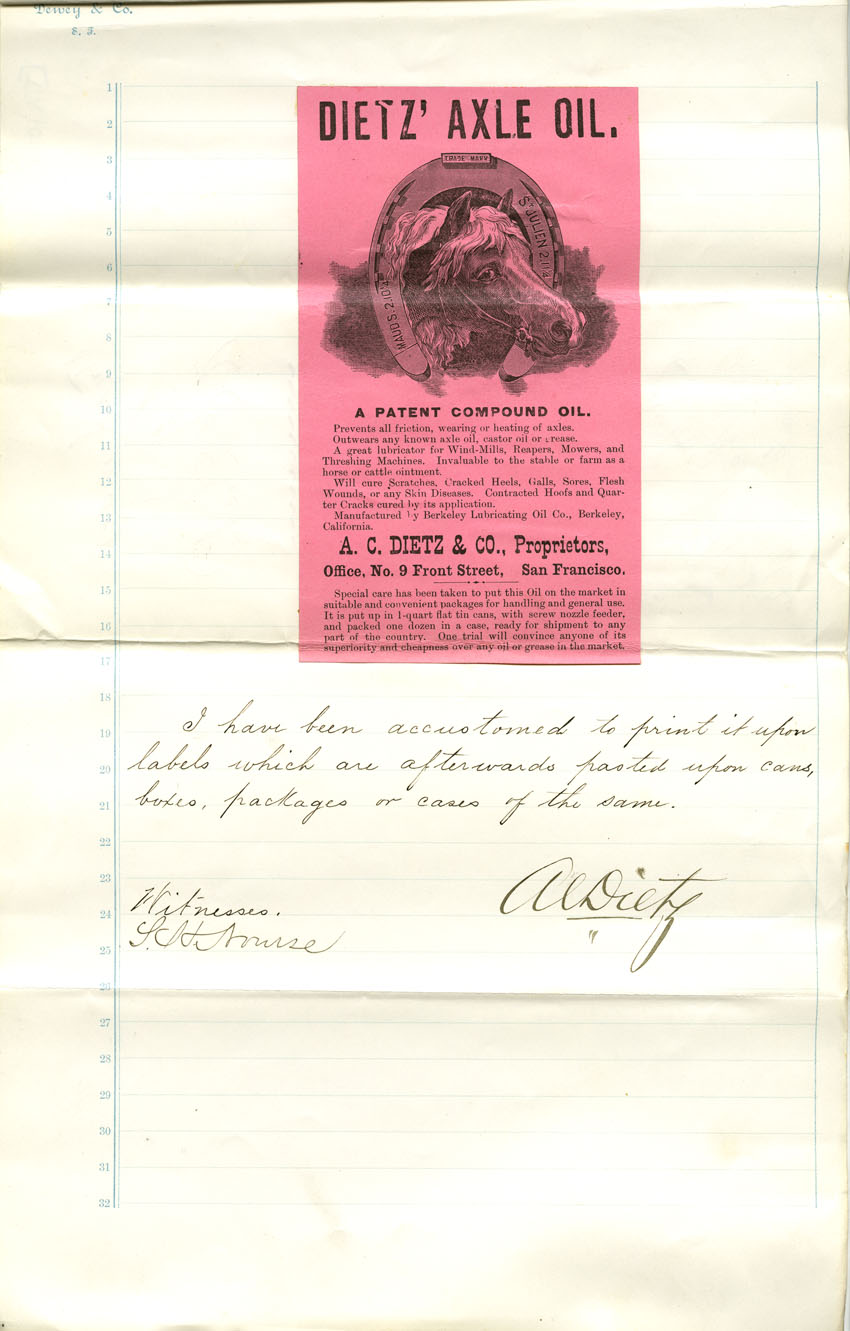 Dewey & Co.
S. F.
1
2
3
4
5
6
7
8
9
10
11
12
13
14
15
16
17
18
19
20
21
22
23
24
25
26
27
28
29
30
31
32
DIETZ' AXLE OIL.
TRADE MARK
MAUD S. 2.10¾
ST JULIEN 2.11¼
A PATENT COMPOUND OIL.
Prevents all friction, wearing or heating of axles.
Outwears any known axle oil, castor oil or grease.
A great lubricator for Wind-Mills, Reapers, Mowers, and
Threshing Machines. Invaluable to the stable or farm as a
horse or cattle ointment.
Will cure Scratches, Cracked Heels, Galls, Sores, Flesh
Wounds, or any Skin Diseases. Contracted Hoofs and Quar-
ter Cracks cured by its application.
Manufactured by Berkeley Lubricating Oil Co., Berkeley,
California.
A. C. DIETZ & CO., Proprietors,
Office, No. 9 Front Street, San Francisco.
Special care has been taken to put this Oil on the market in
suitable and convenient packages for handling and general use.
It is put up in 1-quart flat tin cans, with screw nozzle feeder,
and packed one dozen in a case, ready for shipment to any
part of the country. One trial will convince anyone of its
superiority and cheapness over any oil or grease in the market.
I have been accustomed to print it upon
labels which are afterwards pasted upon cans,
boxes, packages or cases of the same.
A C Dietz
Witnesses.
S. H. Nourse